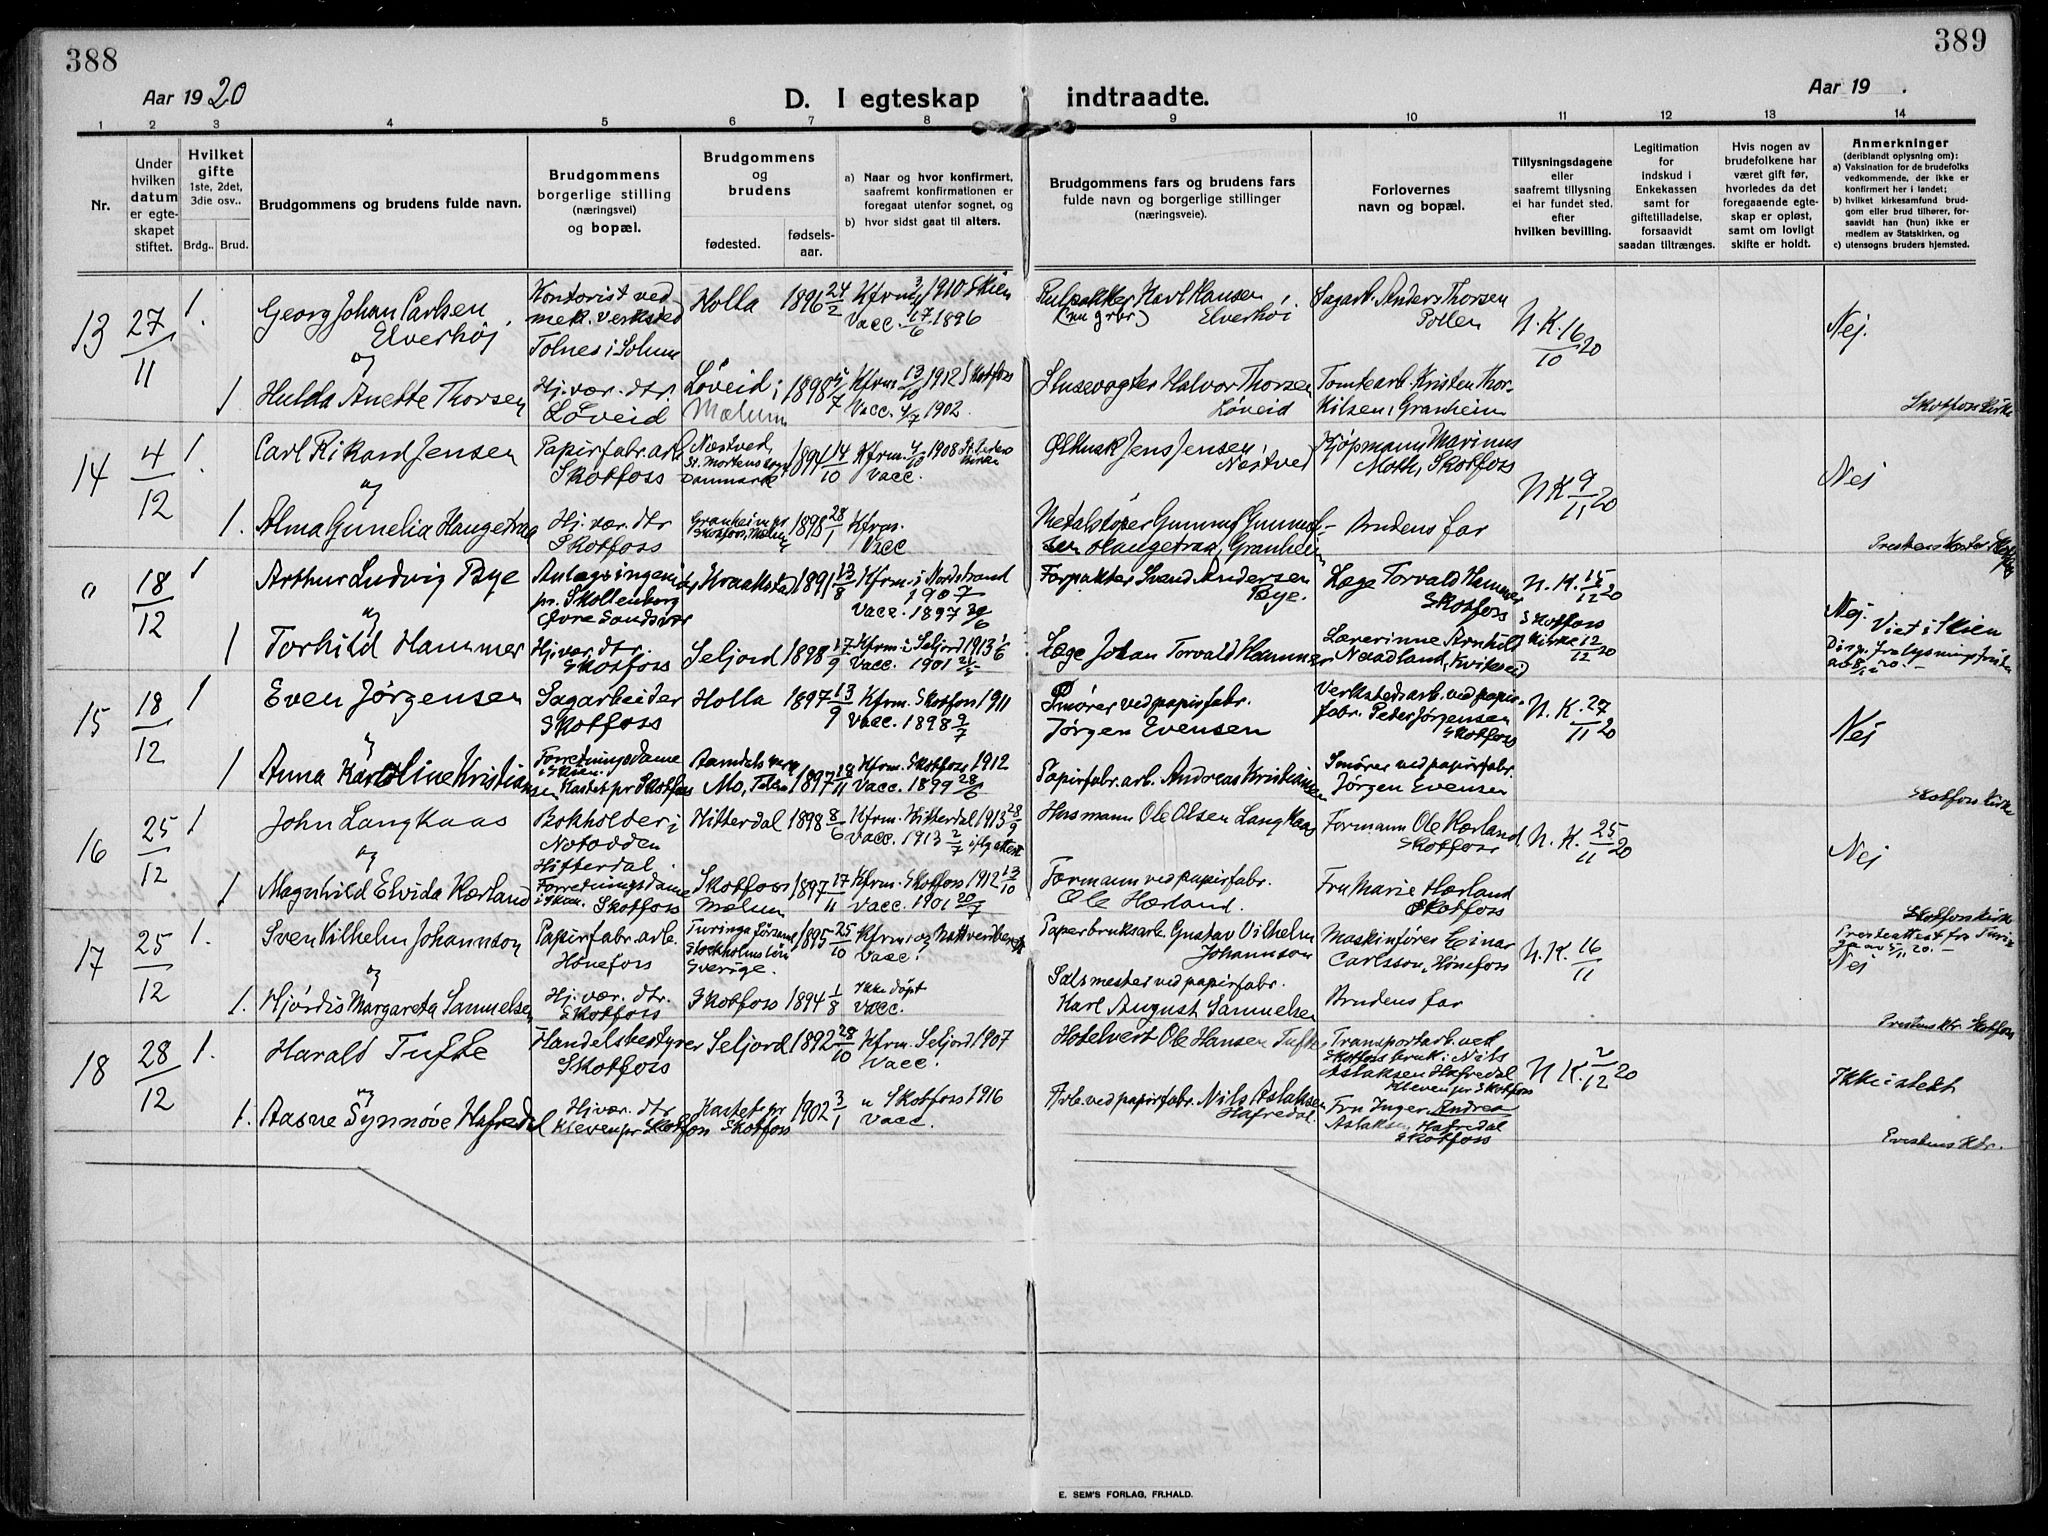 388
389
Aar 1920
D. I egteskap indtraadte.
Aar 19 .
1 2 3 4 5 6 7 8 9 10 11 12 13 14
Nr.
Under hvilken datum er egte-skapet stiftet.
Hvilket gifte
1ste, 2det, 3die osv..
Brdg.. Brud.
Brudgommens og brudens fulde navn.
Brudgommens borgerlige stilling (næringsvei) og bopæl.
Brudgommens og brudens
fødested.
fødsels-aar.
a) Naar og hvor konfirmert, saafremt konfirmationen er foregaat utenfor sognet, og
b) hvor sidst gaat til alters.
Brudgommens fars og brudens fars fulde navn og borgerlige stillinger (næringsveie).
Forlovernes navn og bopæl.
Tillysningsdagene eller saafremt tillysning ei har fundet sted, efter hvilken bevilling.
Legitimation for indskud i Enkekassen samt for giftetilladelse, forsaavidt saadan tiltrænges.
Hvis nogen av brudefolkene har været gift før, hvorledes da det foregaaende egte-skap er opløst, samt om lovligt skifte er holdt.
Anmerkninger
(deriblandt oplysning om):
a) Vaksination for de brudefolks vedkommende, der ikke er konfirmert her i landet;
b) hvilket kirkesamfund brud-gom eller brud tilhører, for-saavidt han (hun) ikke er medlem av Statskirken, og
c) utensogns bruders hjemsted.
13 27/11 1. Georg Johan Carlsen Elverhøj
og
Kontorist ved mek. verksted Tolnes i Solum
Holla 1896 24/2 Kfrm. 1910 Skien
Vacc. 17/6 1896
Karl Hansen Elverhøi
Sagarb. Anders Thorsen Pollen
N. K. 16/10 20
Nej.
1 Hulda Anette Thorsen
Hj. vær. dtr. Løveid
Løveid i Mælum 1898 Kfrm. 13/10 1912 Skotfoss
Vacc. 4/7 1902.
Slusevogter Halvor Thorsen Løveid
Tomtearb. Kristen Thor-kilsen, Granheim
Skotfoss Kirke
14 4/12 1. Carl Rikard Jensen
og
Papirfabr. arb. Skotfoss
Næstved, St. Mortens sogn Danmark 1894 14/10 Kfrm. 4/10 1908 St. Peders Kirke
Vacc.
Jens Jensen, Næstved
Kjøpmann Marinus Moth, Skotfoss
N K 9/11 20
Nej
1. Alma Gunelia Haugetraa
Hj. vær. dtr Skotfoss
Granheim pr Skotfoss, Mælum 1898 28/1 Kfrm.
Vacc
Metalstøper Gunmuf Gunnuf-sen Haugetraa, Granheim
Brudens far
Prestens Kontor Skotfoss
0 18/12 1 Arthur Ludvig Bye
og
Anlægsingeniør pr. Skollenborg Øvre Sandsvær
Kraakstad 1891 13/8 Kfrm. i Nordstrand 1907
Vacc. 1897 30/6
Forpakter Svend Andersen Bye.
Læge Torvald Hammer Skotfoss
N. K. 15/12 20
Skotfoss Kirke 12/12 20
Nej. Viet i Skien
1 Torhild Hammer
Hj. vær. dtr. Skotfoss
Seljord 1898 17/9 Kfrm. i Seljord 1913 1/6
Vacc. 1901
Læge Johan Torvald Hammer
Lærerinne Arnhild Naadland, Kviteseid
15 18/12 1 Even Jørgensen
og
Sagarbeider Skotfoss
Holla 1897 13/9 Kfrm. Skotfoss 1911
Vacc. 1898 9/7
Smører ved papirfabr. Jørgen Evensen
Verkstedsarb. ved papir-fabr. Peder Jørgensen Skotfoss
N. K. 27/11 20
Nej
1 Anna Karoline Kristiansen
Forretningsdame i Skien. Hastet pr Skotfoss
Aamdals verk Mo, Telem. 1897 18/11 Kfrm. Skotfoss 1912
Vacc. 1899 28/6
Papirfabr. arb. Andreas Kristiansen
Smører ved papirfabr. Jørgen Evensen
Skotfoss Kirke
16 25/12 1 John Langkaas
og
Bokholder i Notodden Hitterdal.
Hitterdal 1898 8/6 Kfrm. Hitterdal 1913 28/9
Vacc. 1913 2/7 iflg attest
Husmann Ole Olsen Langkaas
Formann Ole Hærland, Skotfoss
N. K. 25/11 20
Nej
1 Magnhild Elvida Hærland
Forretningsdame i Skien. Skotfoss
Skotfoss Mælum 1897 17/11 Kfrm. Skotfoss 1912 13/10
Vacc. 1901 20/7
Formann ved papirfabr. Ole Hærland.
Fru Marie Hærland Skotfoss
Skotfoss Kirke
17 25/12 1. Sven Vilhelm Johannson
og
Papirfabr. arb. Hønefoss
Turinga Stockholms län Sverige. 1895 25/10 Kfrm. og Nattverdberet.
Vacc.
Paperbruksarb. Gustav Vilhelm Johannson
Maskinfører Einar Carlsson, Hønefoss
N. K. 16/11
Presteattest fra Turin-ga av 5/11 20.
Nej
1. Hjørdis Margareta Samuelsen
Hj. vær. dtr. Skotfoss
Skotfoss 1894 1/8 Ikke døpt
Vacc.
Salsmester ved papirfabr. Karl August Samuelsen
Brudens far
Prestens ktr. Skotfoss
18 28/12 1. Harald Tufte
og
Handelsbestyrer Skotfoss
Seljord 1892 28/10 Kfrm. Seljord 1907
Vacc.
Hotelvert Ole Hansen Tufte
Transportarb. ved Skotfoss bruk: Nils Aslaksen Hafredal Kleven pr Skotfoss
N K. 2/12 20
Ikke istedt
1. Aasne Synnøve Hafredal
Hj. vær. dtr Kleven pr Skotfoss
Hastet pr Skotfoss 1902 3/1 " Skotfoss 1916
Vacc.
Arb. ved papirfabr. Nils Aslaksen Hafredal.
Fru Inger Andrea Aslaksen Hafredal Skotfoss
Prestens Ktr.
E. SEM'S FORLAG, FR.HALD.